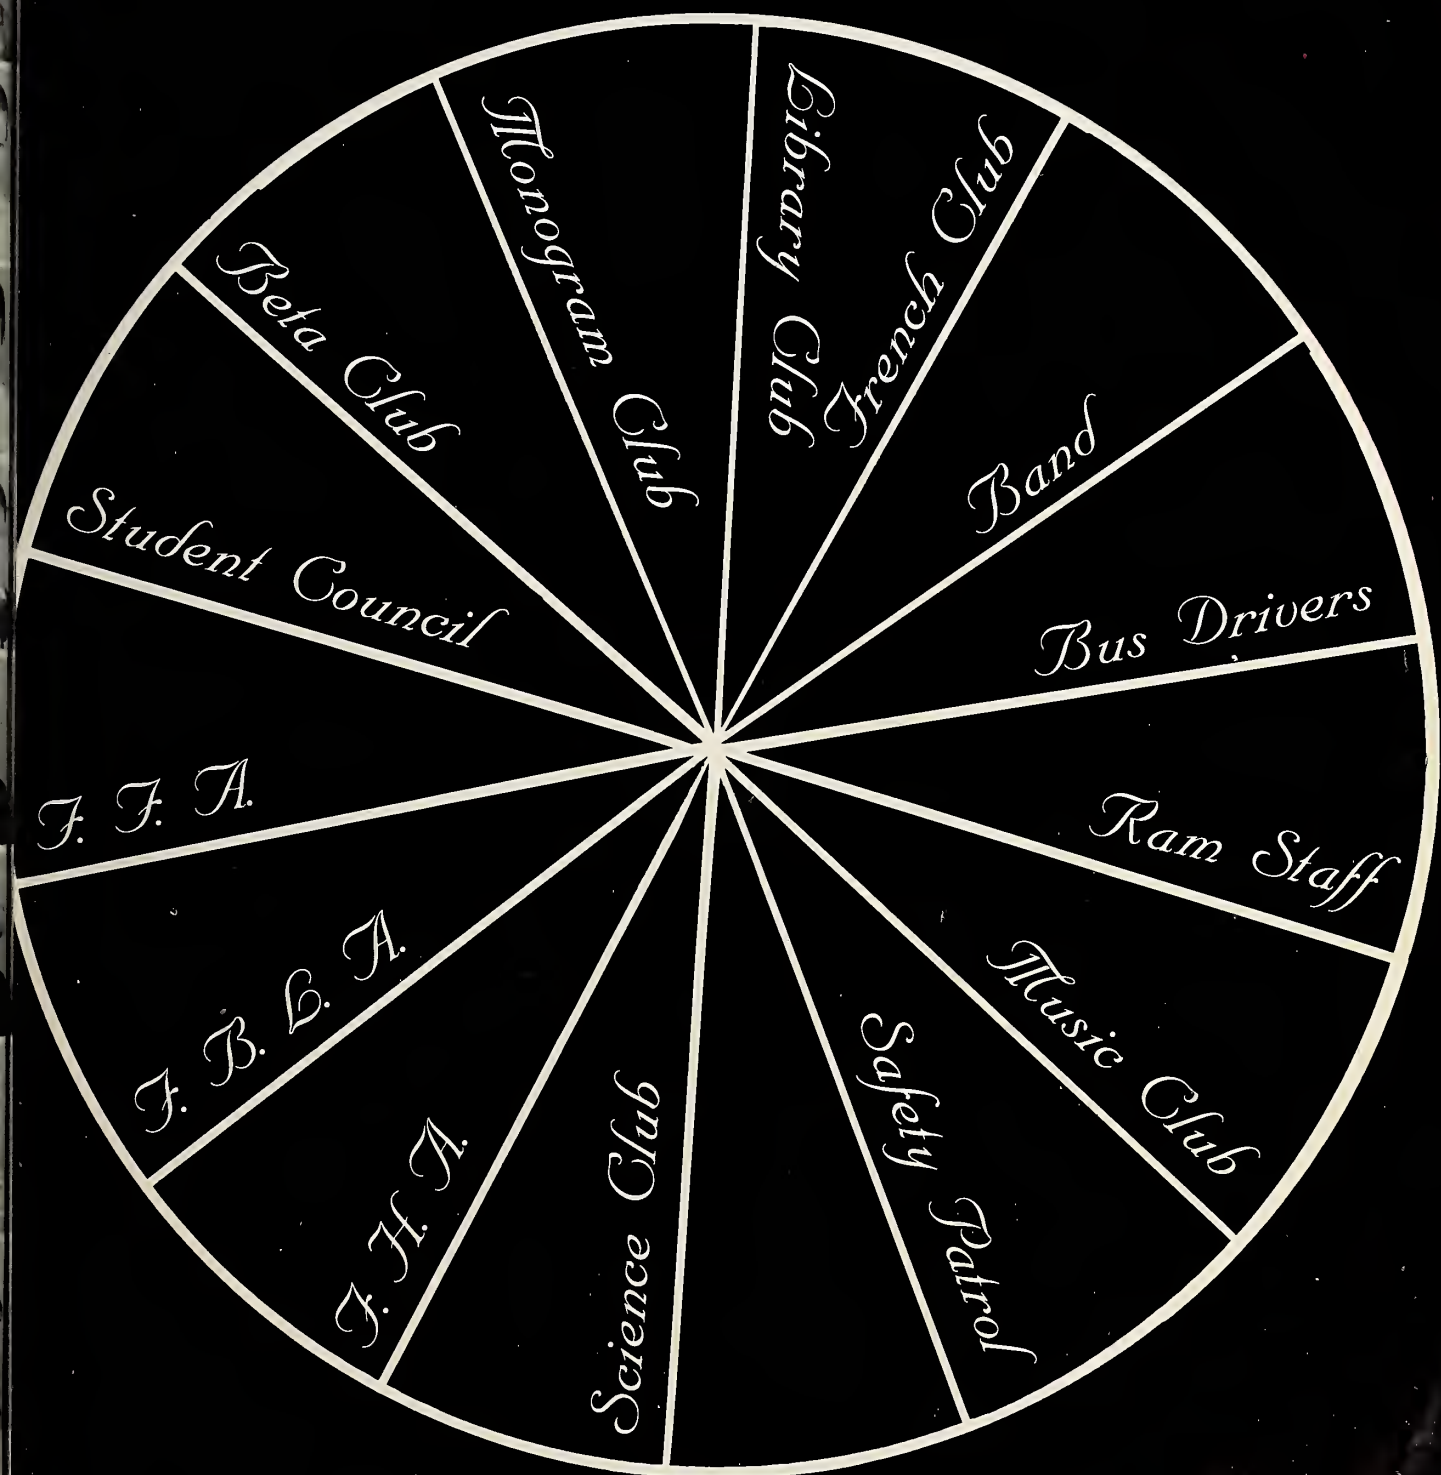 Library Club
French Club
Band
Bus Drivers
Ram Staff
Music Club
Safety Patrol
Science Club
F. H. A.
F. B. L. A.
F. F. A.
Student Council
Beta Club
Monogram Club